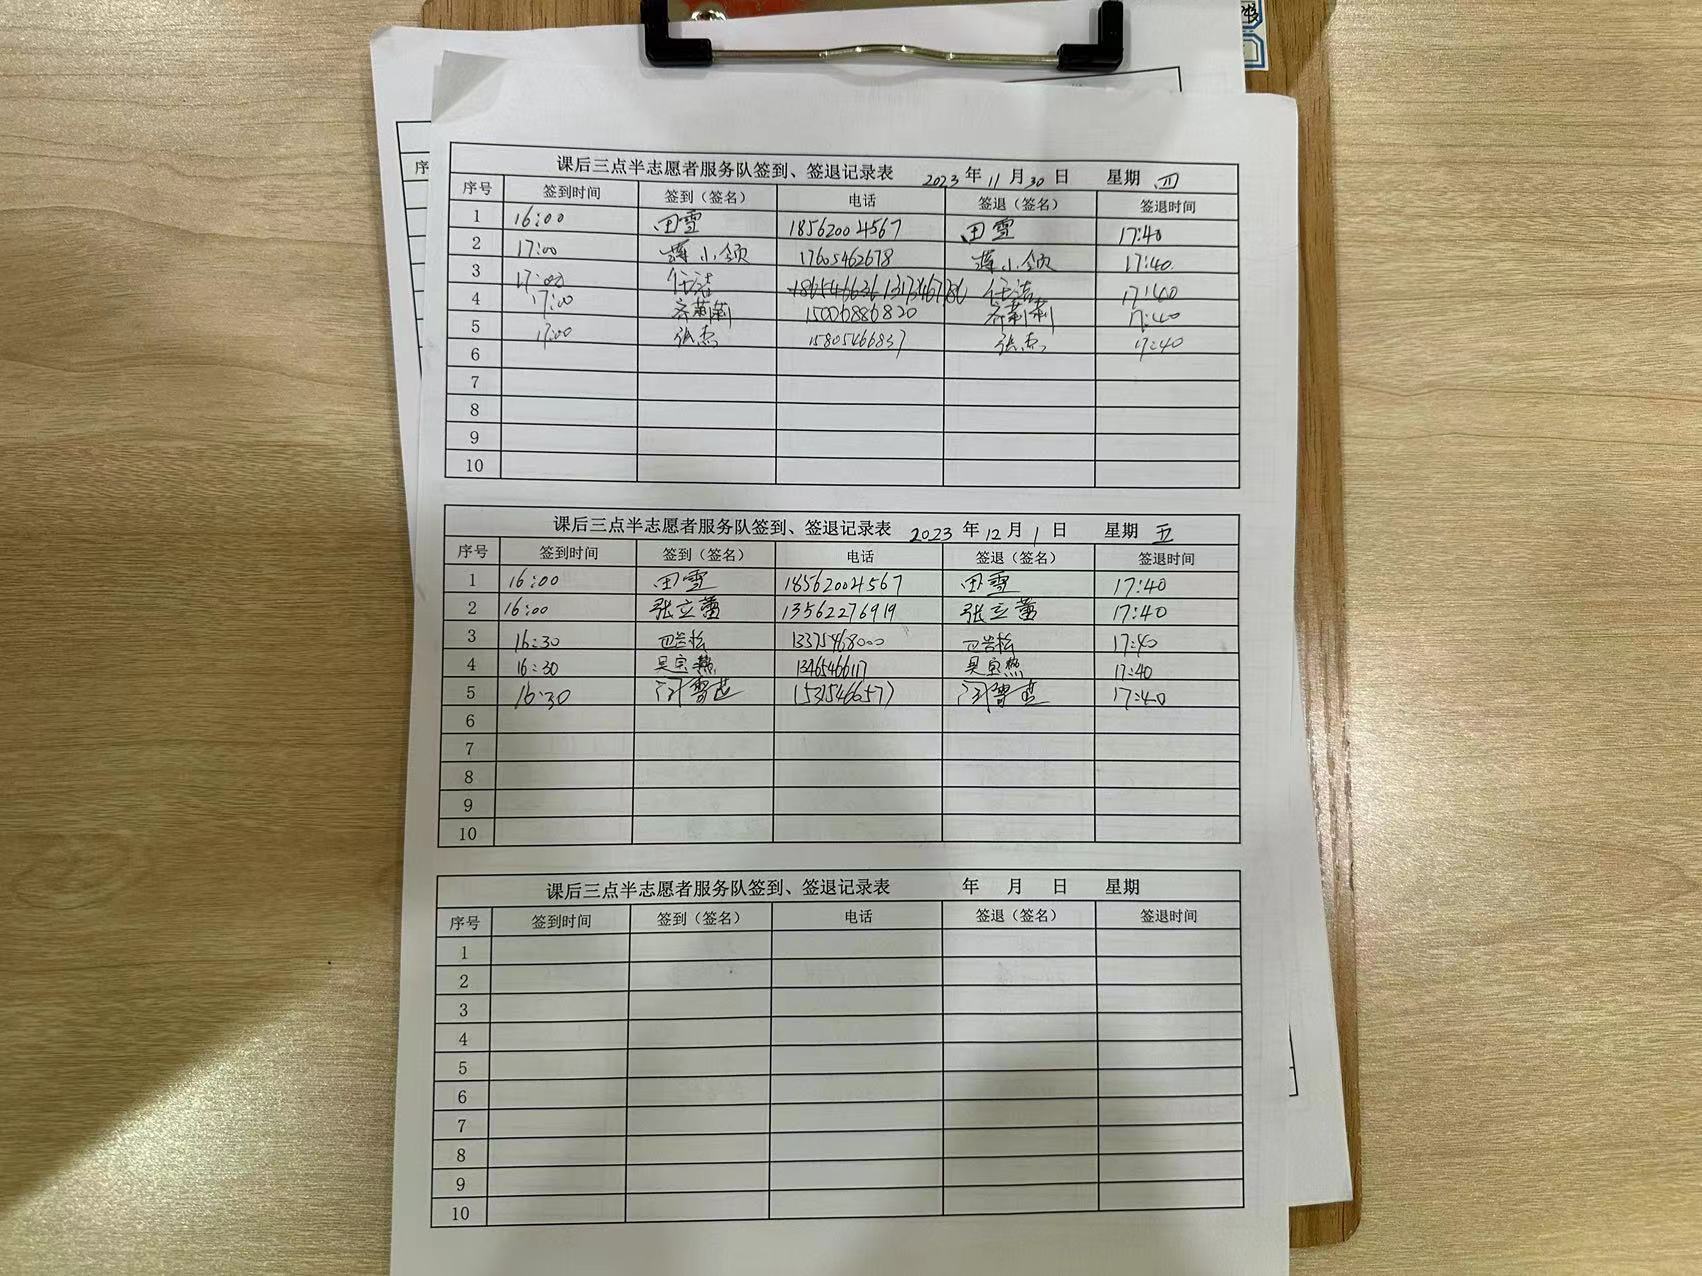 课后三点半志愿者服务队签到、签退记录表 2023 年 11 月 30 日 星期 四
序号 签到时间 签到（签名） 电话 签退（签名） 签退时间
1 16:00 田雪 18562004567 田雪 17:40
2 17:00 蒋小领 17605462678 蒋小领 17:40
3 17:00 任洁 任洁 17:40
4 17:00 齐莉莉 15006886820 齐莉莉 17:40
5 17:00 张杰 15805466837 张杰 17:40
6
7
8
9
10
课后三点半志愿者服务队签到、签退记录表 2023 年 12 月 1 日 星期 五
序号 签到时间 签到（签名） 电话 签退（签名） 签退时间
1 16:00 田雪 18562004567 田雪 17:40
2 16:00 张立蕾 13562276919 张立蕾 17:40
3 16:30 13375468000 17:40
4 16:30 13465466117 17:40
5 16:30 15315466577 17:40
6
7
8
9
10
课后三点半志愿者服务队签到、签退记录表 年 月 日 星期
序号 签到时间 签到（签名） 电话 签退（签名） 签退时间
1
2
3
4
5
6
7
8
9
10